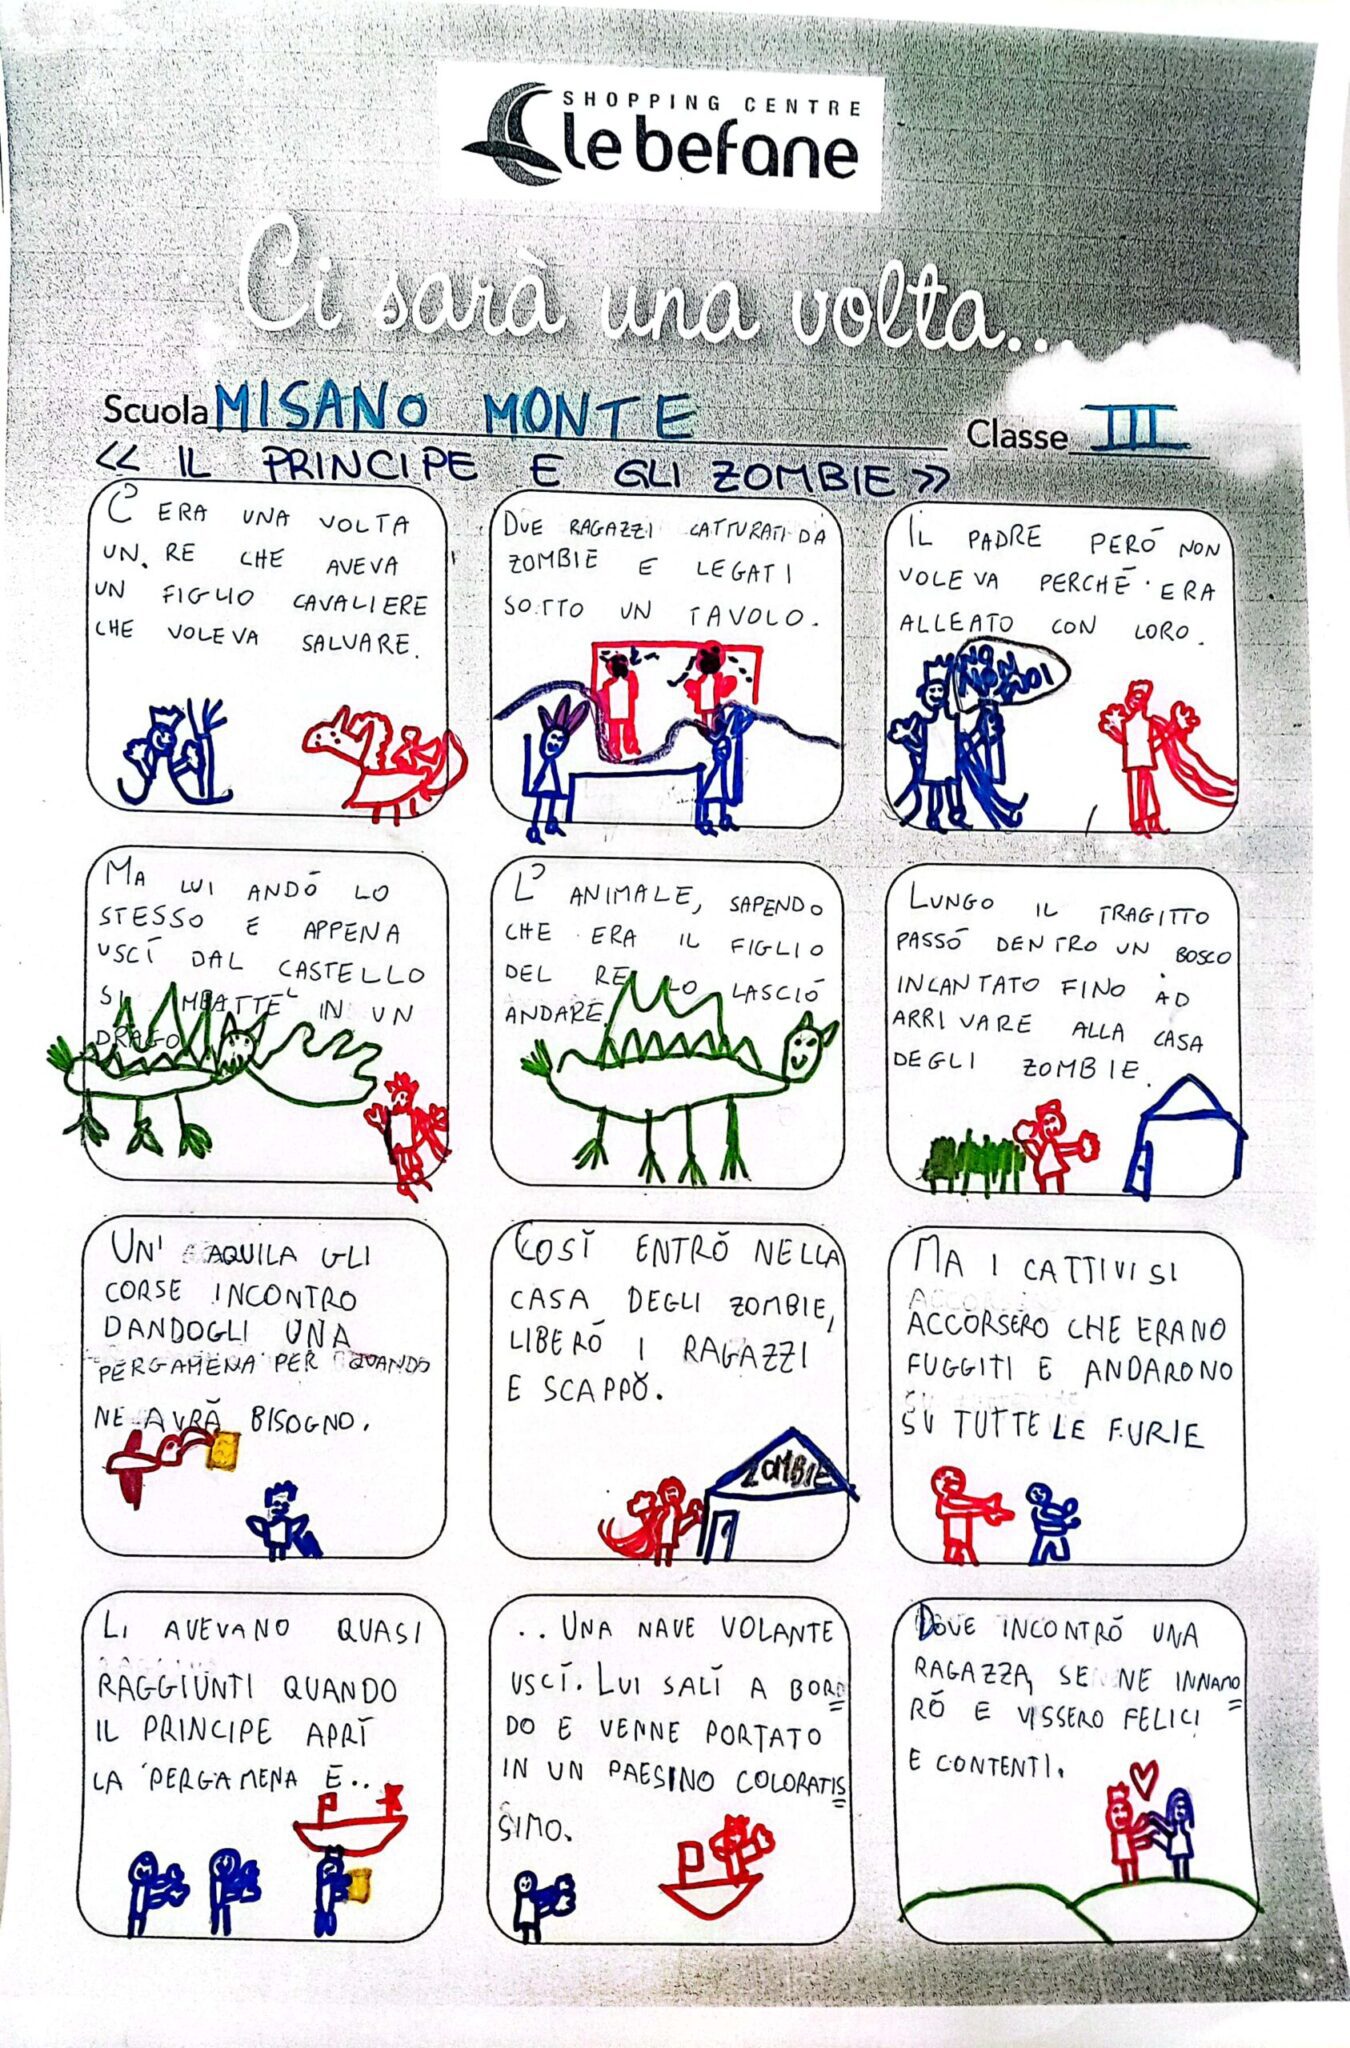 SHOPPING CENTRE
le befane
Ci sarà una volta...
Scuola MISANO MONTE Classe III
<< IL PRINCIPE E GLI ZOMBIE >>
C'ERA UNA VOLTA
UN RE CHE AVEVA
UN FIGLIO CAVALIERE
CHE VOLEVA SALVARE.
DUE RAGAZZI CATTURATI DA
ZOMBIE E LEGATI
SOTTO UN TAVOLO.
IL PADRE PERÓ NON
VOLEVA PERCHÉ ERA
ALLEATO CON LORO.
NON
MA LUI ANDÓ LO
STESSO E APPENA
USCÍ DAL CASTELLO
SI IMBATTÉ IN UN
DRAGO
L'ANIMALE, SAPENDO
CHE ERA IL FIGLIO
DEL RE LO LASCIÓ
ANDARE.
LUNGO IL TRAGITTO
PASSÓ DENTRO UN BOSCO
INCANTATO FINO AD
ARRIVARE ALLA CASA
DEGLI ZOMBIE.
UN'AQUILA GLI
CORSE INCONTRO
DANDOGLI UNA
PERGAMENA PER QUANDO
NE AVRÁ BISOGNO.
COSÍ ENTRÓ NELLA
CASA DEGLI ZOMBIE,
LIBERÓ I RAGAZZI
E SCAPPÓ.
ZOMBIE
MA I CATTIVI SI
ACCORSERO CHE ERANO
FUGGITI E ANDARONO
SU TUTTE LE FURIE
LI AVEVANO QUASI
RAGGIUNTI QUANDO
IL PRINCIPE APRÍ
LA PERGAMENA E..
..UNA NAVE VOLANTE
USCÍ. LUI SALÍ A BOR=
DO E VENNE PORTATO
IN UN PAESINO COLORATIS=
SIMO.
DOVE INCONTRÓ UNA
RAGAZZA, SE NE INNAMO=
RÓ E VISSERO FELICI
E CONTENTI.